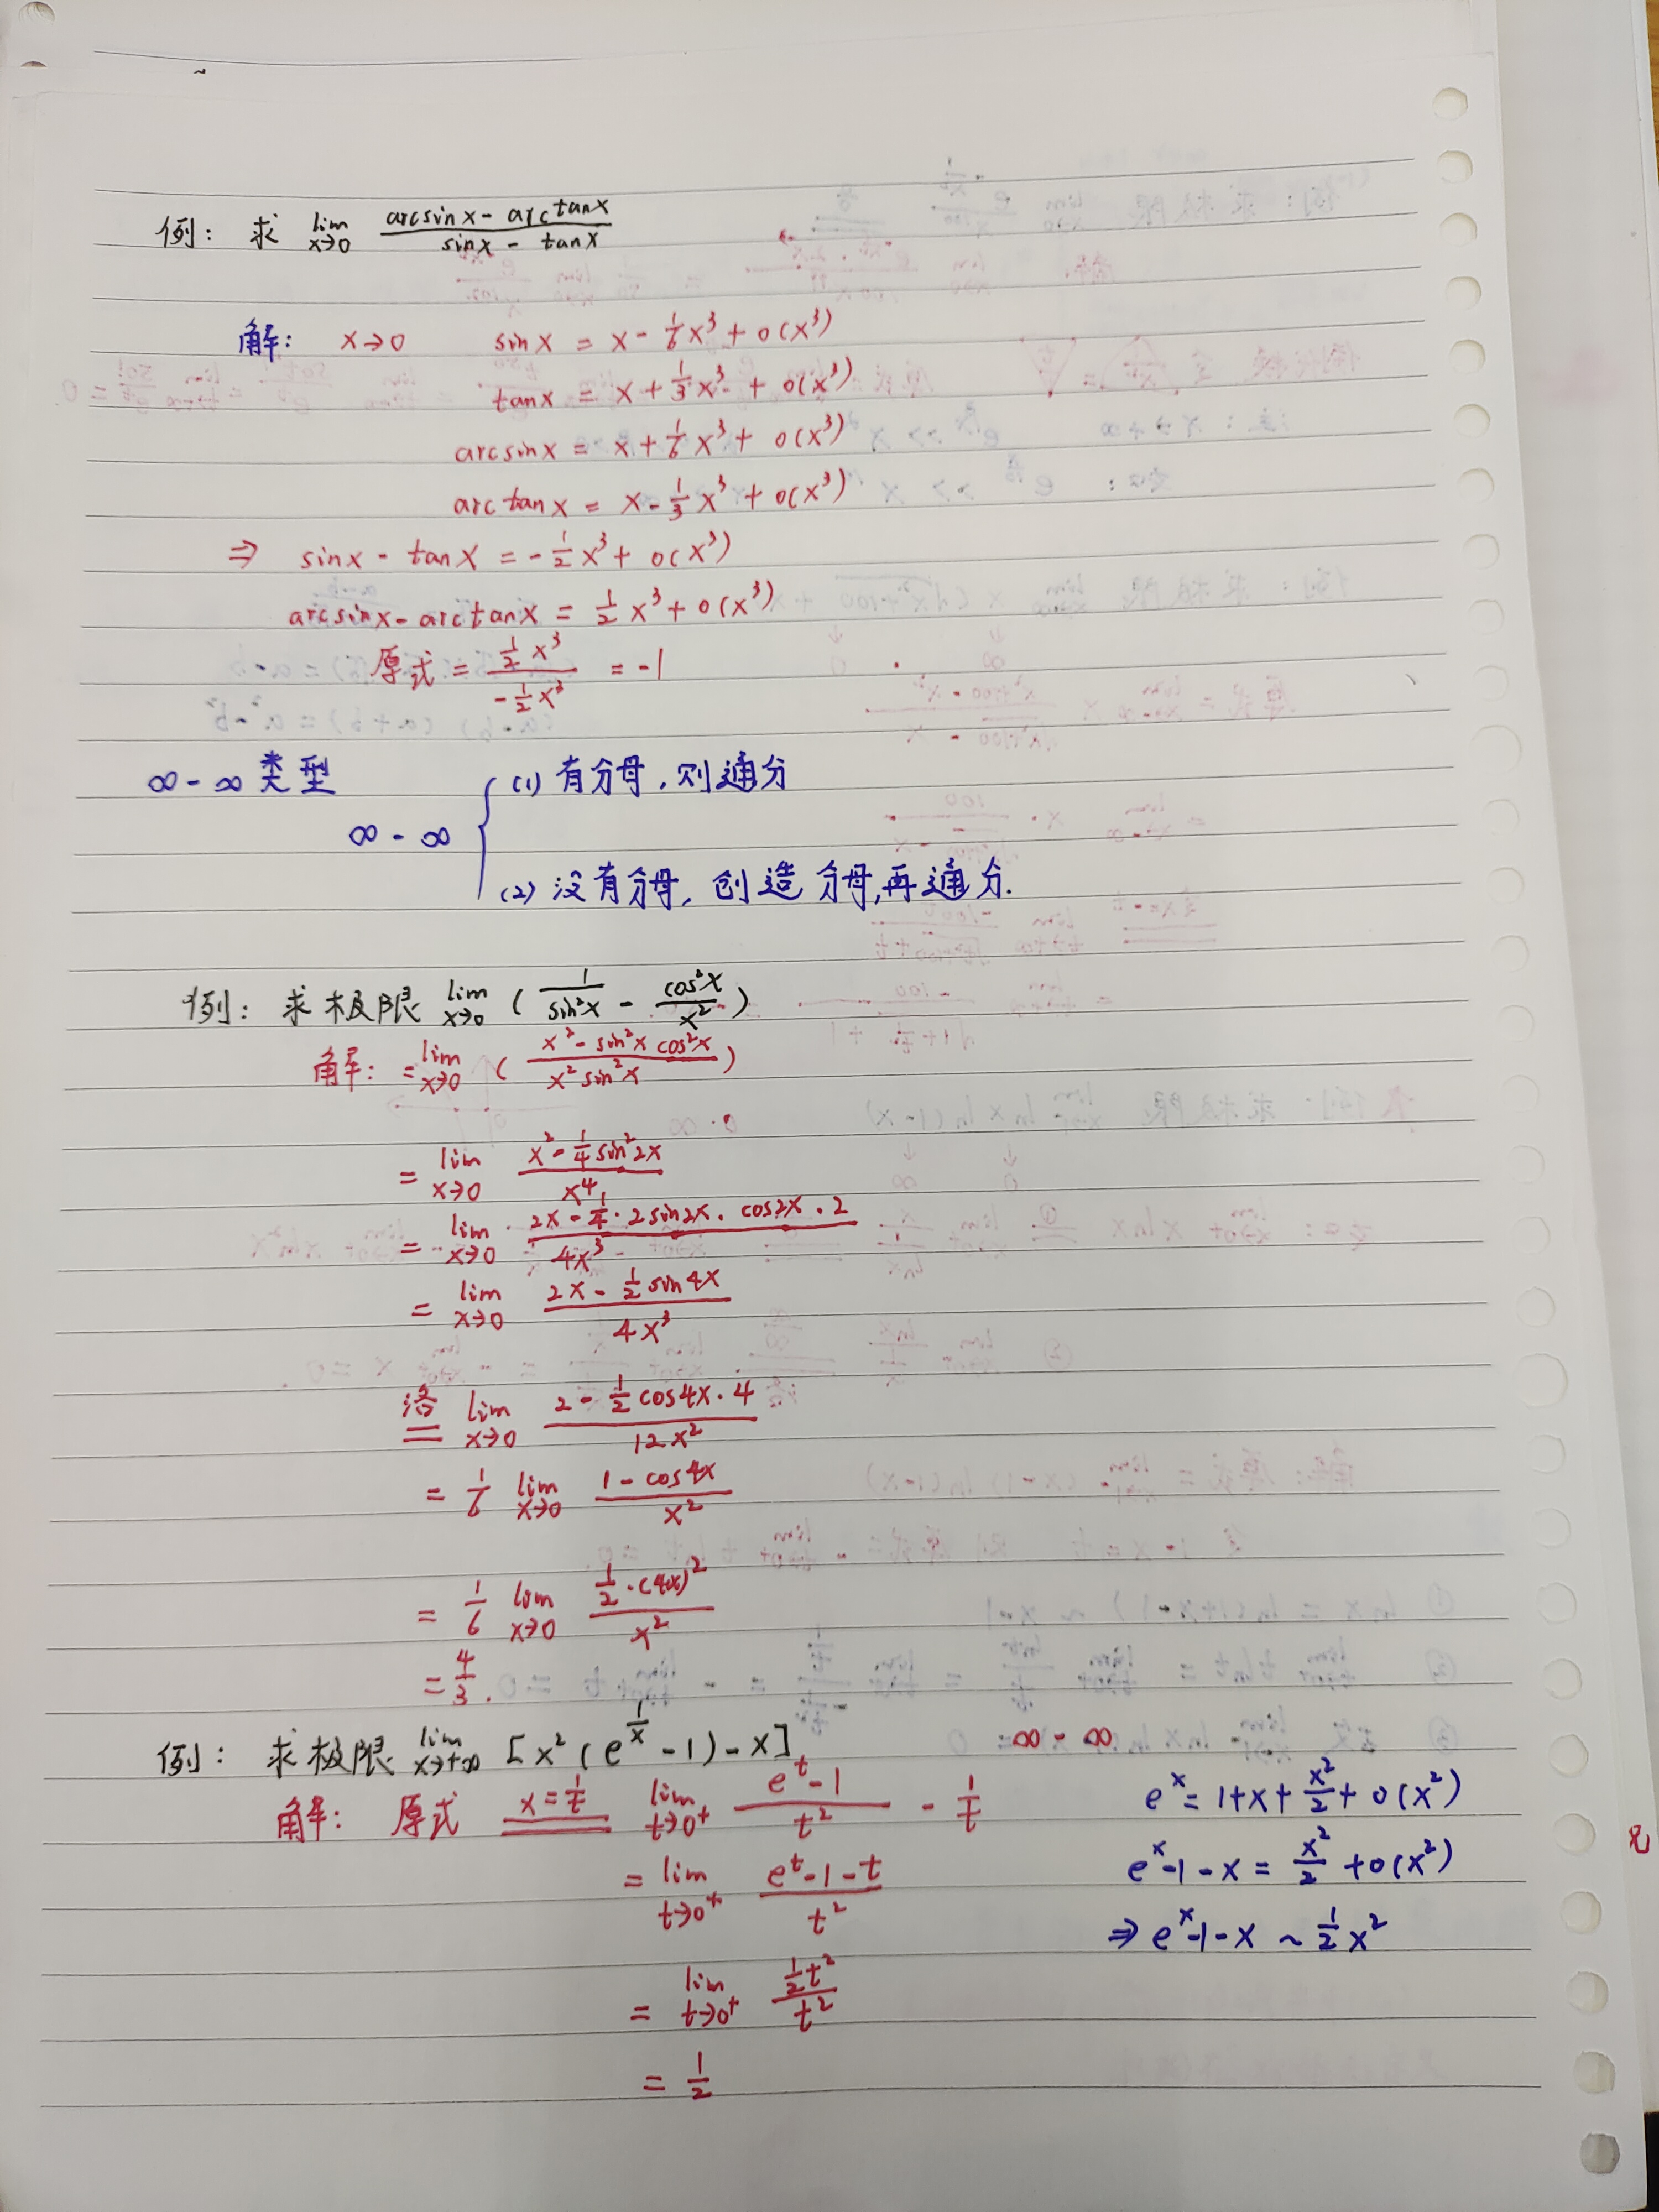 例: 求 lim x→0 (arcsinx - arctanx)/(sinx - tanx)
解: x→0 sinx = x - 1/6 x³ + o(x³)
tanx = x + 1/3 x³ + o(x³)
arcsinx = x + 1/6 x³ + o(x³)
arctanx = x - 1/3 x³ + o(x³)
⇒ sinx - tanx = -1/2 x³ + o(x³)
arcsinx - arctanx = 1/2 x³ + o(x³)
原式 = (1/2 x³)/(-1/2 x³) = -1
∞-∞ 类型
(1) 有分母,则通分
∞-∞
(2) 没有分母,创造分母,再通分.
例: 求极限 lim x→0 (1/sin²x - cos²x/x²)
解: = lim x→0 ((x² - sin²x cos²x)/(x² sin²x))
= lim x→0 (x² - 1/4 sin²2x)/x⁴
= lim x→0 (2x - 1/4 · 2sin2x · cos2x · 2)/4x³
= lim x→0 (2x - 1/2 sin4x)/4x³
洛= lim x→0 (2 - 1/2 cos4x · 4)/12x²
= 1/6 lim x→0 (1 - cos4x)/x²
= 1/6 lim x→0 (1/2 · (4x)²)/x²
= 4/3.
例: 求极限 lim x→+∞ [x²(e^(1/x) - 1) - x] ∞-∞
解: 原式 x=1/t = lim t→0⁺ (e^t - 1)/t² - 1/t
e^x = 1+x+x²/2+o(x²)
= lim t→0⁺ (e^t - 1 - t)/t²
e^x-1-x = x²/2 + o(x²)
⇒ e^x-1-x ~ 1/2 x²
= lim t→0⁺ (1/2 t²)/t²
= 1/2